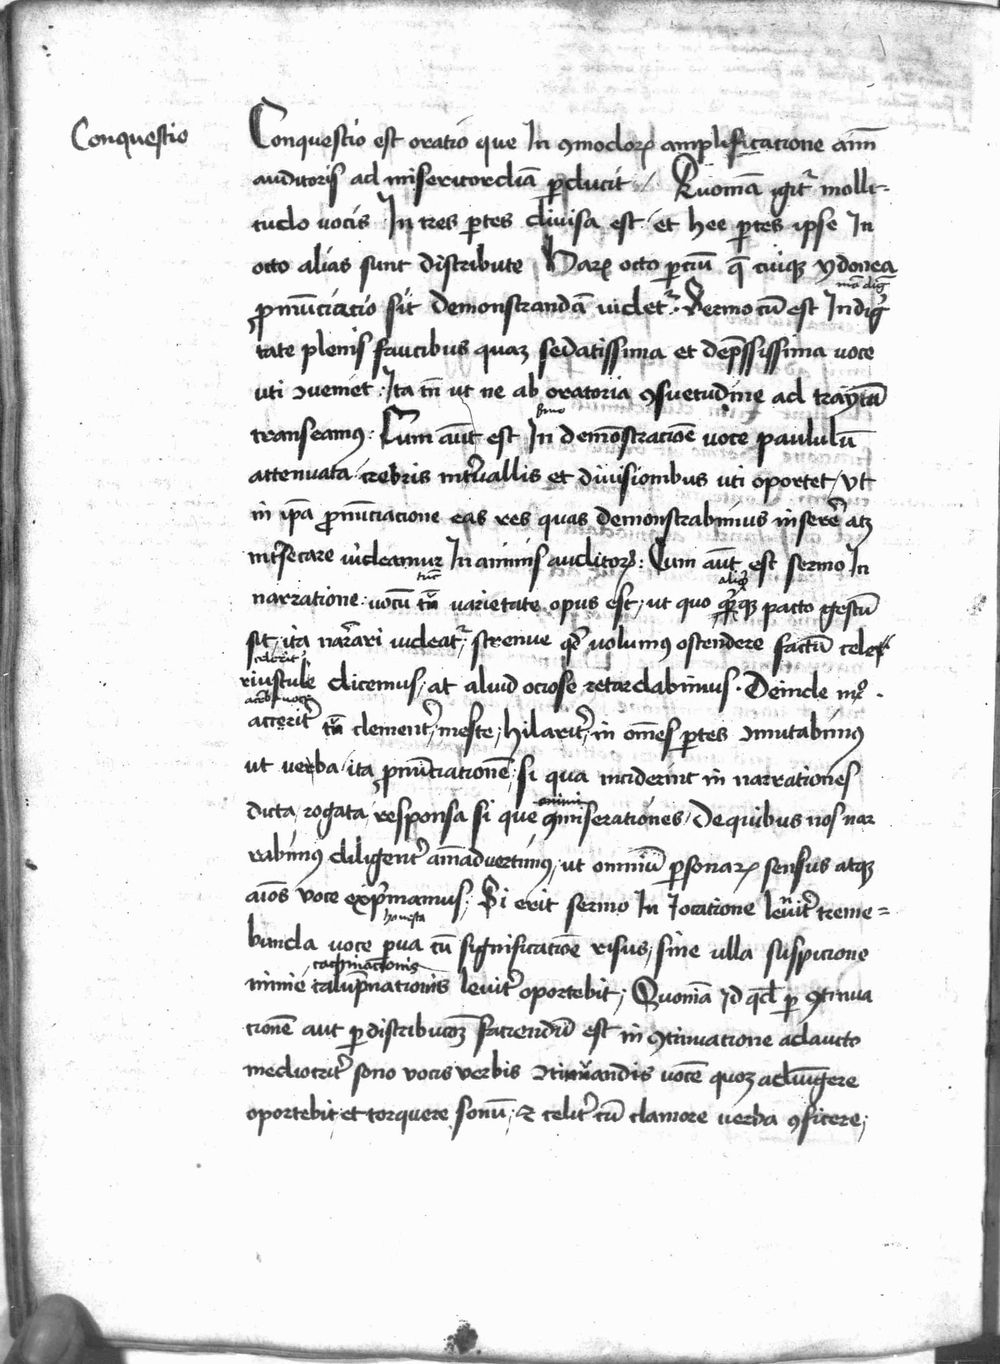 Conquestio
Conquestio est oratio que In ꝯmodoꝝ amplificatione aīm
auditoris ad misericordiā ꝑducit / Quoniā igit᷑ molli-
tudo vocis In tres ꝑtes divisa est / et hee ꝑtes ipse In
octo alias sunt distribute Haꝝ octo ꝑciū q̄ cuiqꝫ ydonea
ꝓnūciatio sit demonstrandā videt᷑ · Sermo cū est In dig
tate plenis faucibus quaꝫ sedatissima et dep̄ssissima voce
uti ꝯveniet · Ita tn̄ ut ne ab oratoria ꝯsuetudine ad traycā
transeamꝰ : Cum aūt est In demōstracioē voce paululū
attenuata crebris int̄vallis et divisionibus uti oportet / vt
in ip̄a ꝓnūciatione eas res quas demonstrabimus inserē atꝫ
int̄secare videamur In animis auditoꝝ : Cum aūt est sermo In
narratione · vocū tū varietate opus est / ut quo pacto gestū
sit / ita narrari videat᷑ / strenue qd̄ volumꝰ ostendere factū cele
riuscule dicemus / at aliud ociose retardabimus · Deinde
acerit̄ tū clement̄ / meste / hilarit̄ / in om̄es ꝑtes ꝯmutabimꝰ
ut verba ita ꝓnūtiationē / si qua inciderint in narrationes
dicta / rogata / responsa si que ammiserationes / De quibus nos nar
rabimꝰ diligent̄ aīmadvertimꝰ / ut omniū ꝑsonaꝝ sensus atqꝫ
aīos voce exp̄mamus / Si erit sermo In Iocatione levit̄ treme-
bunda voce ꝑva cū significatiōe risus / sine ulla suspicione
nimie cachinactionis levit̄ oportebit / Quoniā id qd̄ ꝑ ꝯtinua
tionē aut ꝑ distribucōꝫ faciendū est in ꝯtinuatione adaucto
mediocrit̄ sono vocis verbis ꝯtinuandis vocē quoꝫ adiūgere
oportebit / et torquere sonū / & celit̄ cū clamore verba ꝯficere /